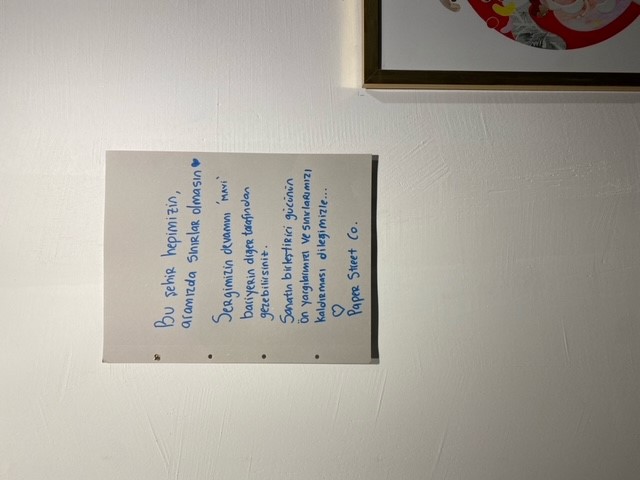 Bu şehir hepimizin,
aramızda sınırlar olmasın ♥
Sergimizin devamını 'MAVİ'
bariyerin diğer tarafından
gezebilirsiniz.
Sanatın birleştirici gücünün
ön yargılarımızı ve sınırlarımızı
kaldırması dileğimizle...
♡
Paper Street Co.